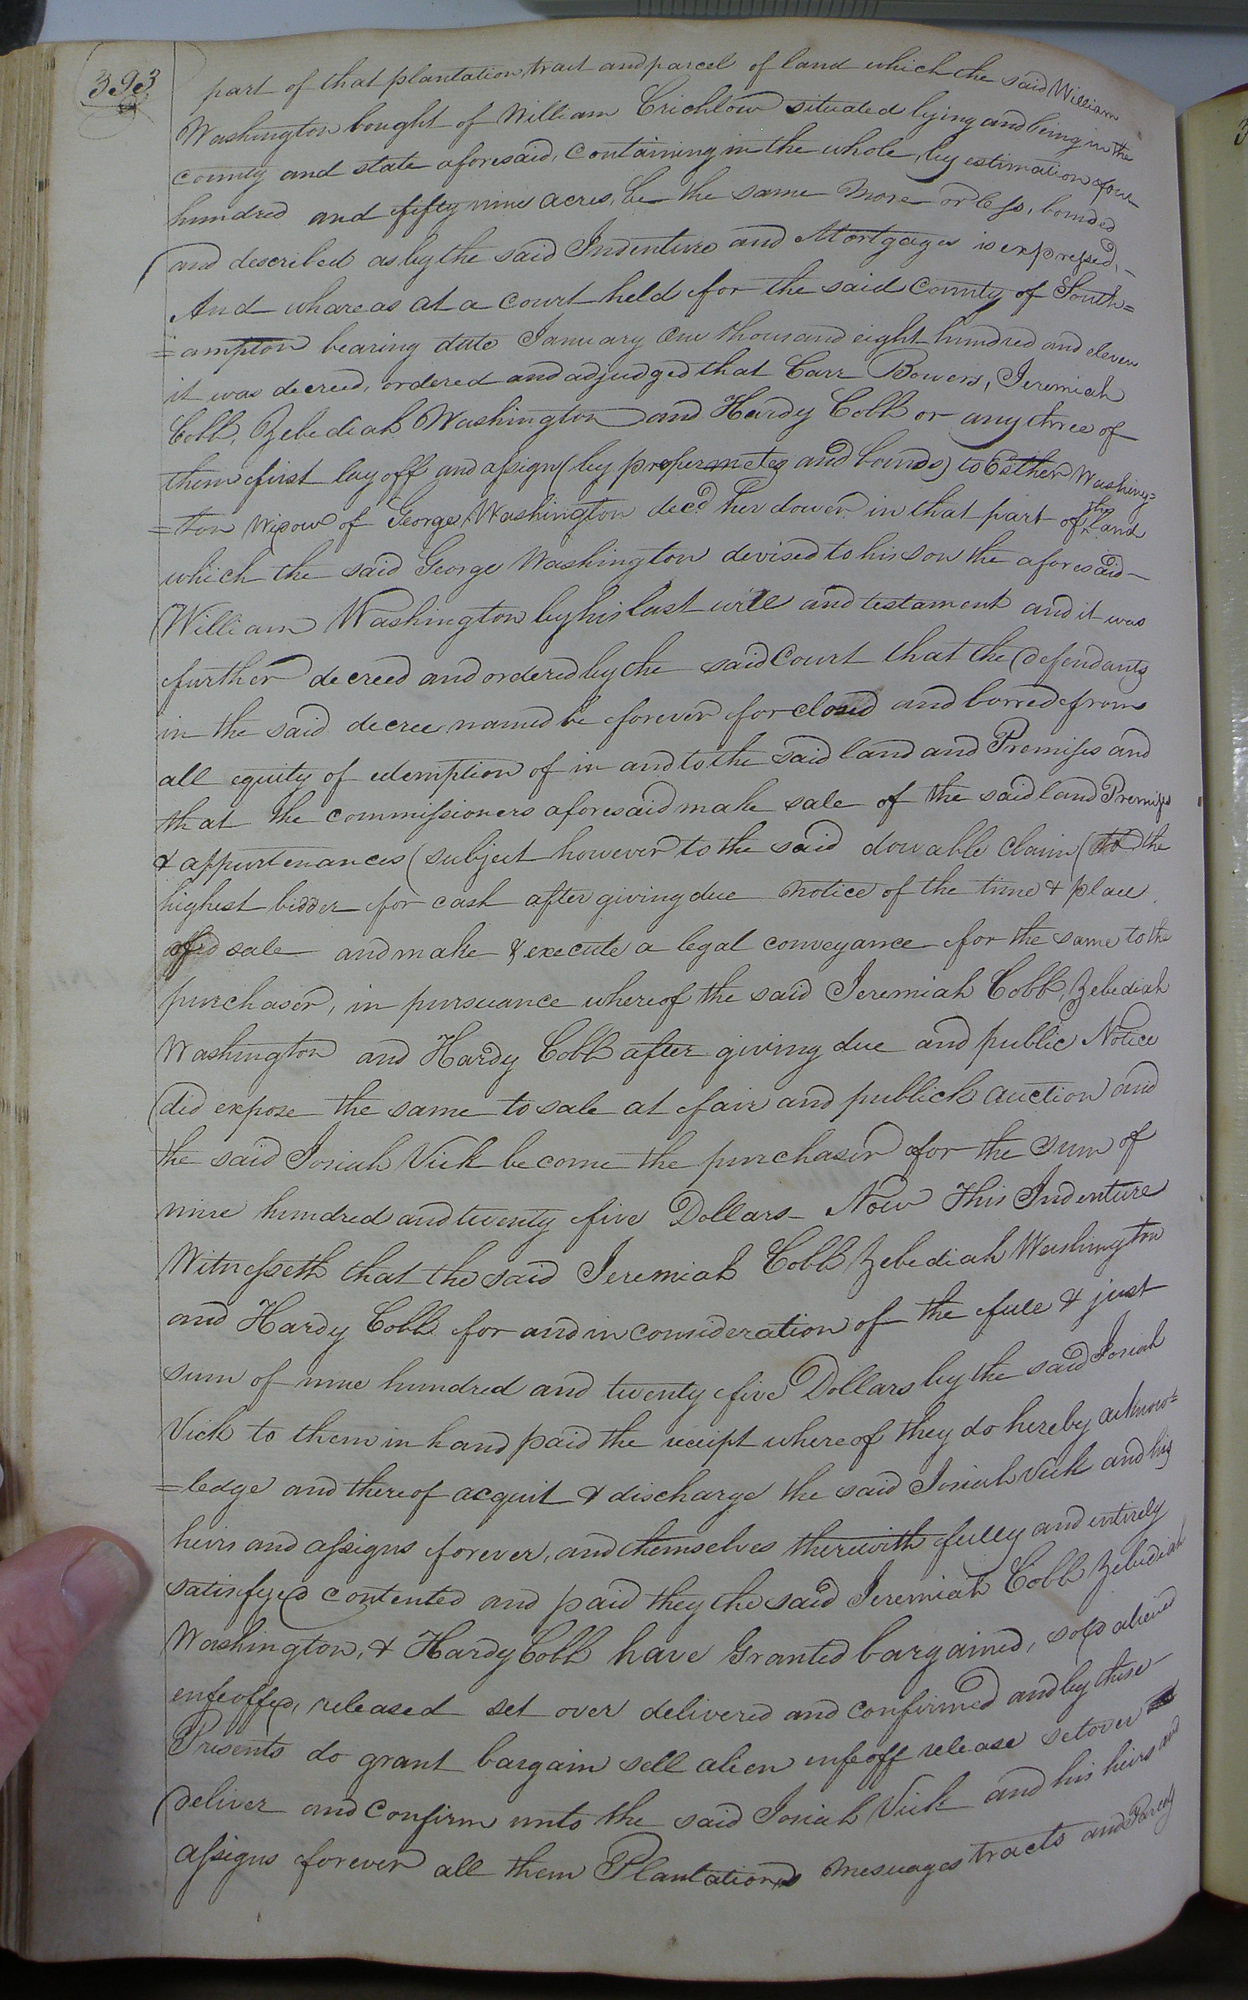 393
part of that plantation, tract and parcel of land which the said William
Washington bought of William Crichlow situated lying and being in the
county and state aforesaid, containing in the whole, by estimation four
hundred and fifty nine acres, be the same more or less, bounded
and described as by the said Indenture and Mortgages is expressed,-
And whareas at a court held for the said county of South=
=ampton bearing date January one thousand eight hundred and eleven
it was decreed, ordered and adjudged that Carr Bowers, Jeremiah
Cobb, Zebediah Washington and Hardy Cobb or any three of
them first lay off and assign (by proper metes and bounds) to Esther Washing=
=ton Widow of George Washington decd. her dower in that part of the land
which the said George Washington devised to his son the aforesaid-
William Washington by his last will and testament and it was
further decreed and ordered by the said Court that the defendants
in the said decree named be forever forclosed and barred from
all equity of edemption of in and to the said land and Premises and
that the commissioners aforesaid make sale of the said land Premises
& appurtenances (subject however to the said dowable claim) to the
highest bidder for cash after giving due notice of the time & place
of sale and make & execute a legal conveyance for the same to the
purchaser, in pursuance whereof the said Jeremiah Cobb, Zebediah
Washington and Hardy Cobb after giving due and public Notice
did expose the same to sale at fair and publick auction and
the said Josiah Vick become the purchaser for the sum of
nine hundred and twenty five Dollars- Now This Indenture
Witnesseth that the said Jeremiah Cobb Zebediah Washington
and Hardy Cobb for and in consideration of the full & just
sum of nine hundred and twenty five Dollars by the said Josiah
Vick to them in hand paid the receipt whereof they do hereby acknow=
=ledge and thereof acquit & discharge the said Josiah Vick and his
heirs and assigns forever, and themselves therewith fully and entirely
satisfyed contented and paid they the said Jeremiah Cobb Zebediah
Washington, & Hardy Cobb have Granted bargained, sold aliened
enfeoffed, released set over delivered and confirmed and by these-
Presents do grant bargain sell alien enfeoff release setover
deliver and confirm unto the said Josiah Vick and his heirs and
assigns forever all them Plantations mesuages tracts and Parcels